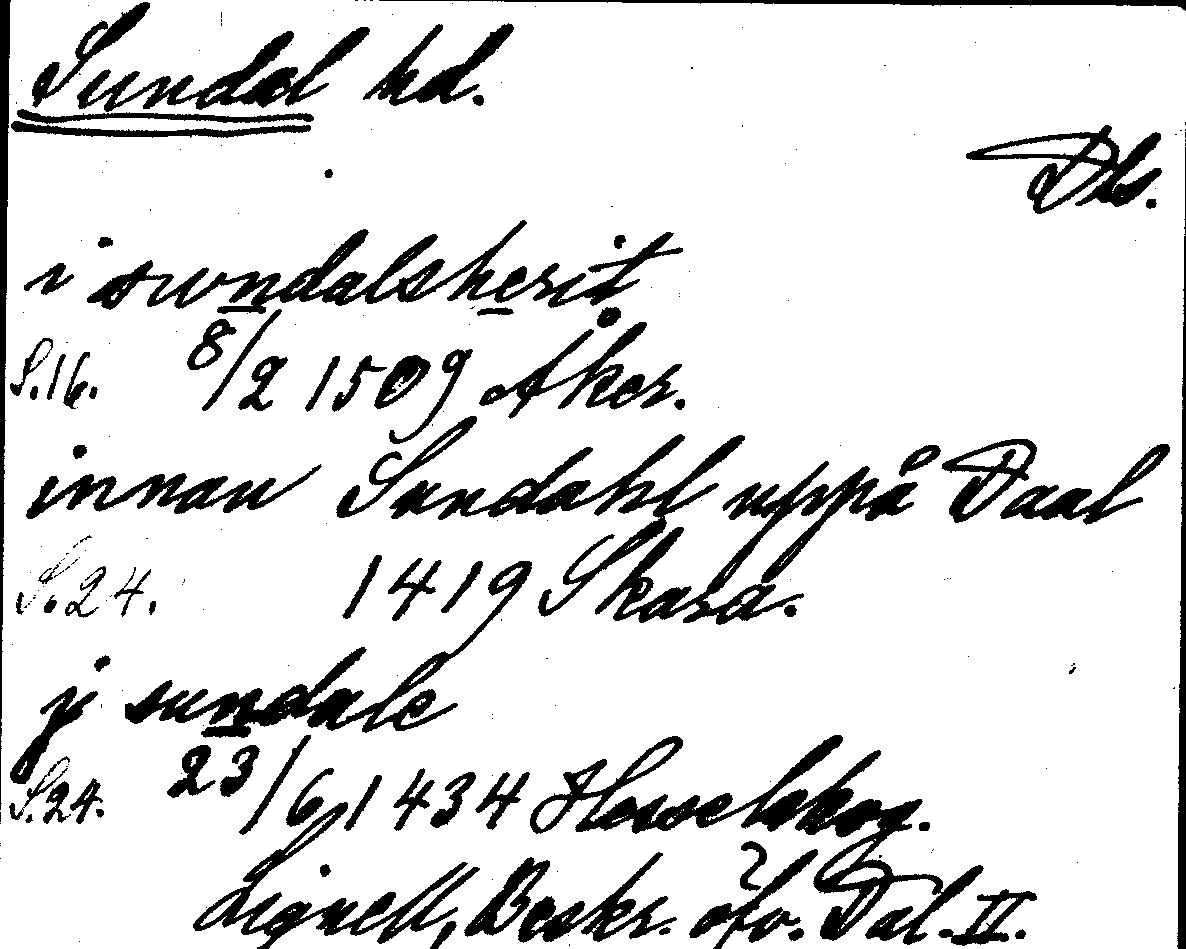 Sundal hd.
Dls.
i swndalsherit
S.16. 8/2 1509 Åker.
innan Sundahl uppå Daal
S.24. 1419 Skara.
ji sundale
S.24. 23/6 1434 Hesselskog.
Lignell, Beskr. öfv. Dal. II.